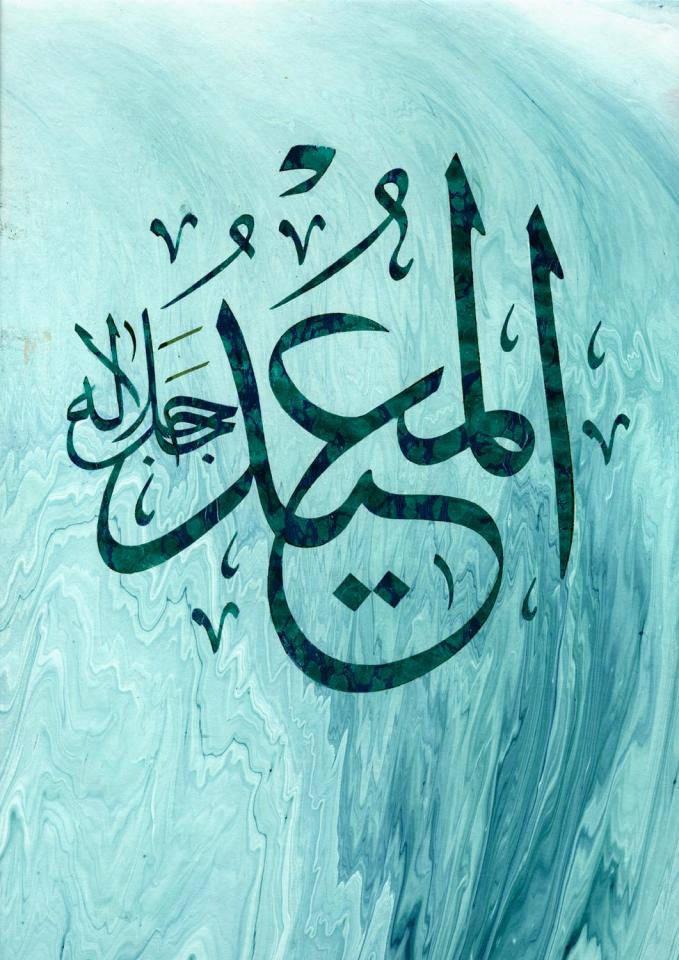 الْمُعِيدُ جَلَّ جَلَالُهُ